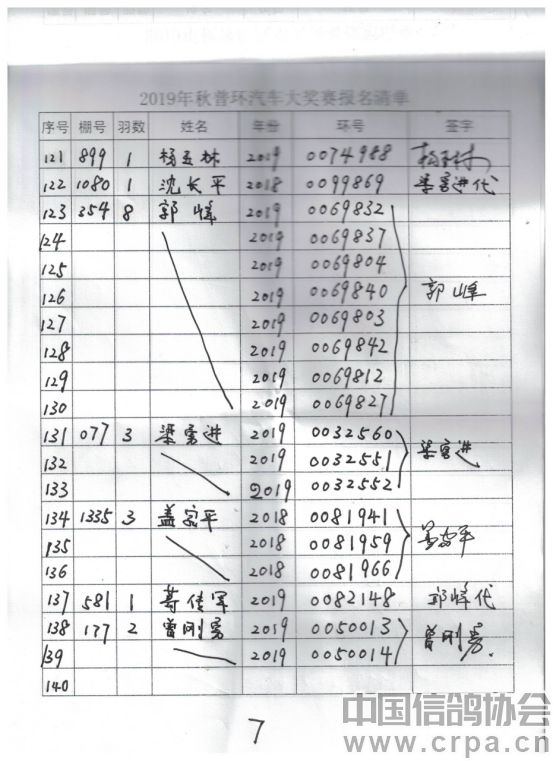 2019年秋普环汽车大奖赛报名清单
序号 棚号 羽数 姓名 年份 环号 签字
121 899 1 杨玉林 2019 0074988 杨玉林
122 1080 1 沈长平 2018 0099869 梁勇进代
123 354 8 郭峰 2019 0069832
124 2019 0069837
125 2019 0069804
126 2019 0069840 郭峰
127 2019 0069803
128 2019 0069842
129 2019 0069812
130 2019 0069827
131 077 3 梁勇进 2019 0032560
132 2019 0032551 梁勇进
133 2019 0032552
134 1335 3 盖家平 2018 0081941
135 2018 0081959 盖家平
136 2018 0081966
137 581 1 2019 0082148 郭峰代
138 177 2 曾刚勇 2019 0050013 曾刚勇
139 2019 0050014
140
7
中国信鸽协会
www.crpa.cn